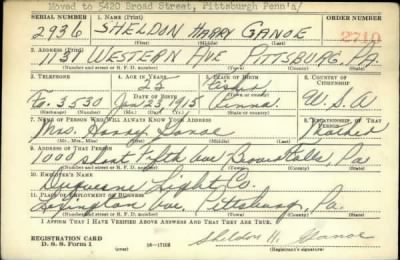 Moved to 5420 Broad Street, Pittsburgh Penn'a/
SERIAL NUMBER 1. NAME (Print) ORDER NUMBER
2936 SHELDON HARRY GANOE 2710
2. ADDRESS (Print)
1137 WESTERN AVE PITTSBURG, PA.
(Number and street or R. F. D. number) (Town) (County) (State)
3. TELEPHONE 4. AGE IN YEARS 5. PLACE OF BIRTH 6. COUNTRY OF CITIZENSHIP
25
DATE OF BIRTH (Town or county)
3530 Jan 23, 1915 Penna. U.S.A
(Exchange) (Number) (Mo.) (Day) (Yr.) (State or country)
7. NAME OF PERSON WHO WILL ALWAYS KNOW YOUR ADDRESS 8. RELATIONSHIP OF THAT PERSON
Mrs. Harry Ganoe Mother
9. ADDRESS OF THAT PERSON
1000 Fifth Ave Pa
(Number and street or R. F. D. number) (Town) (County) (State)
10. EMPLOYER'S NAME
Duquesne Light Co.
11. PLACE OF EMPLOYMENT OR BUSINESS
Ave. Pittsburg, Pa.
(Number and street or R. F. D. number) (Town) (County) (State)
I AFFIRM THAT I HAVE VERIFIED ABOVE ANSWERS AND THAT THEY ARE TRUE.
REGISTRATION CARD
D. S. S. Form 1 16-17105 Sheldon H. Ganoe
(Registrant's signature)